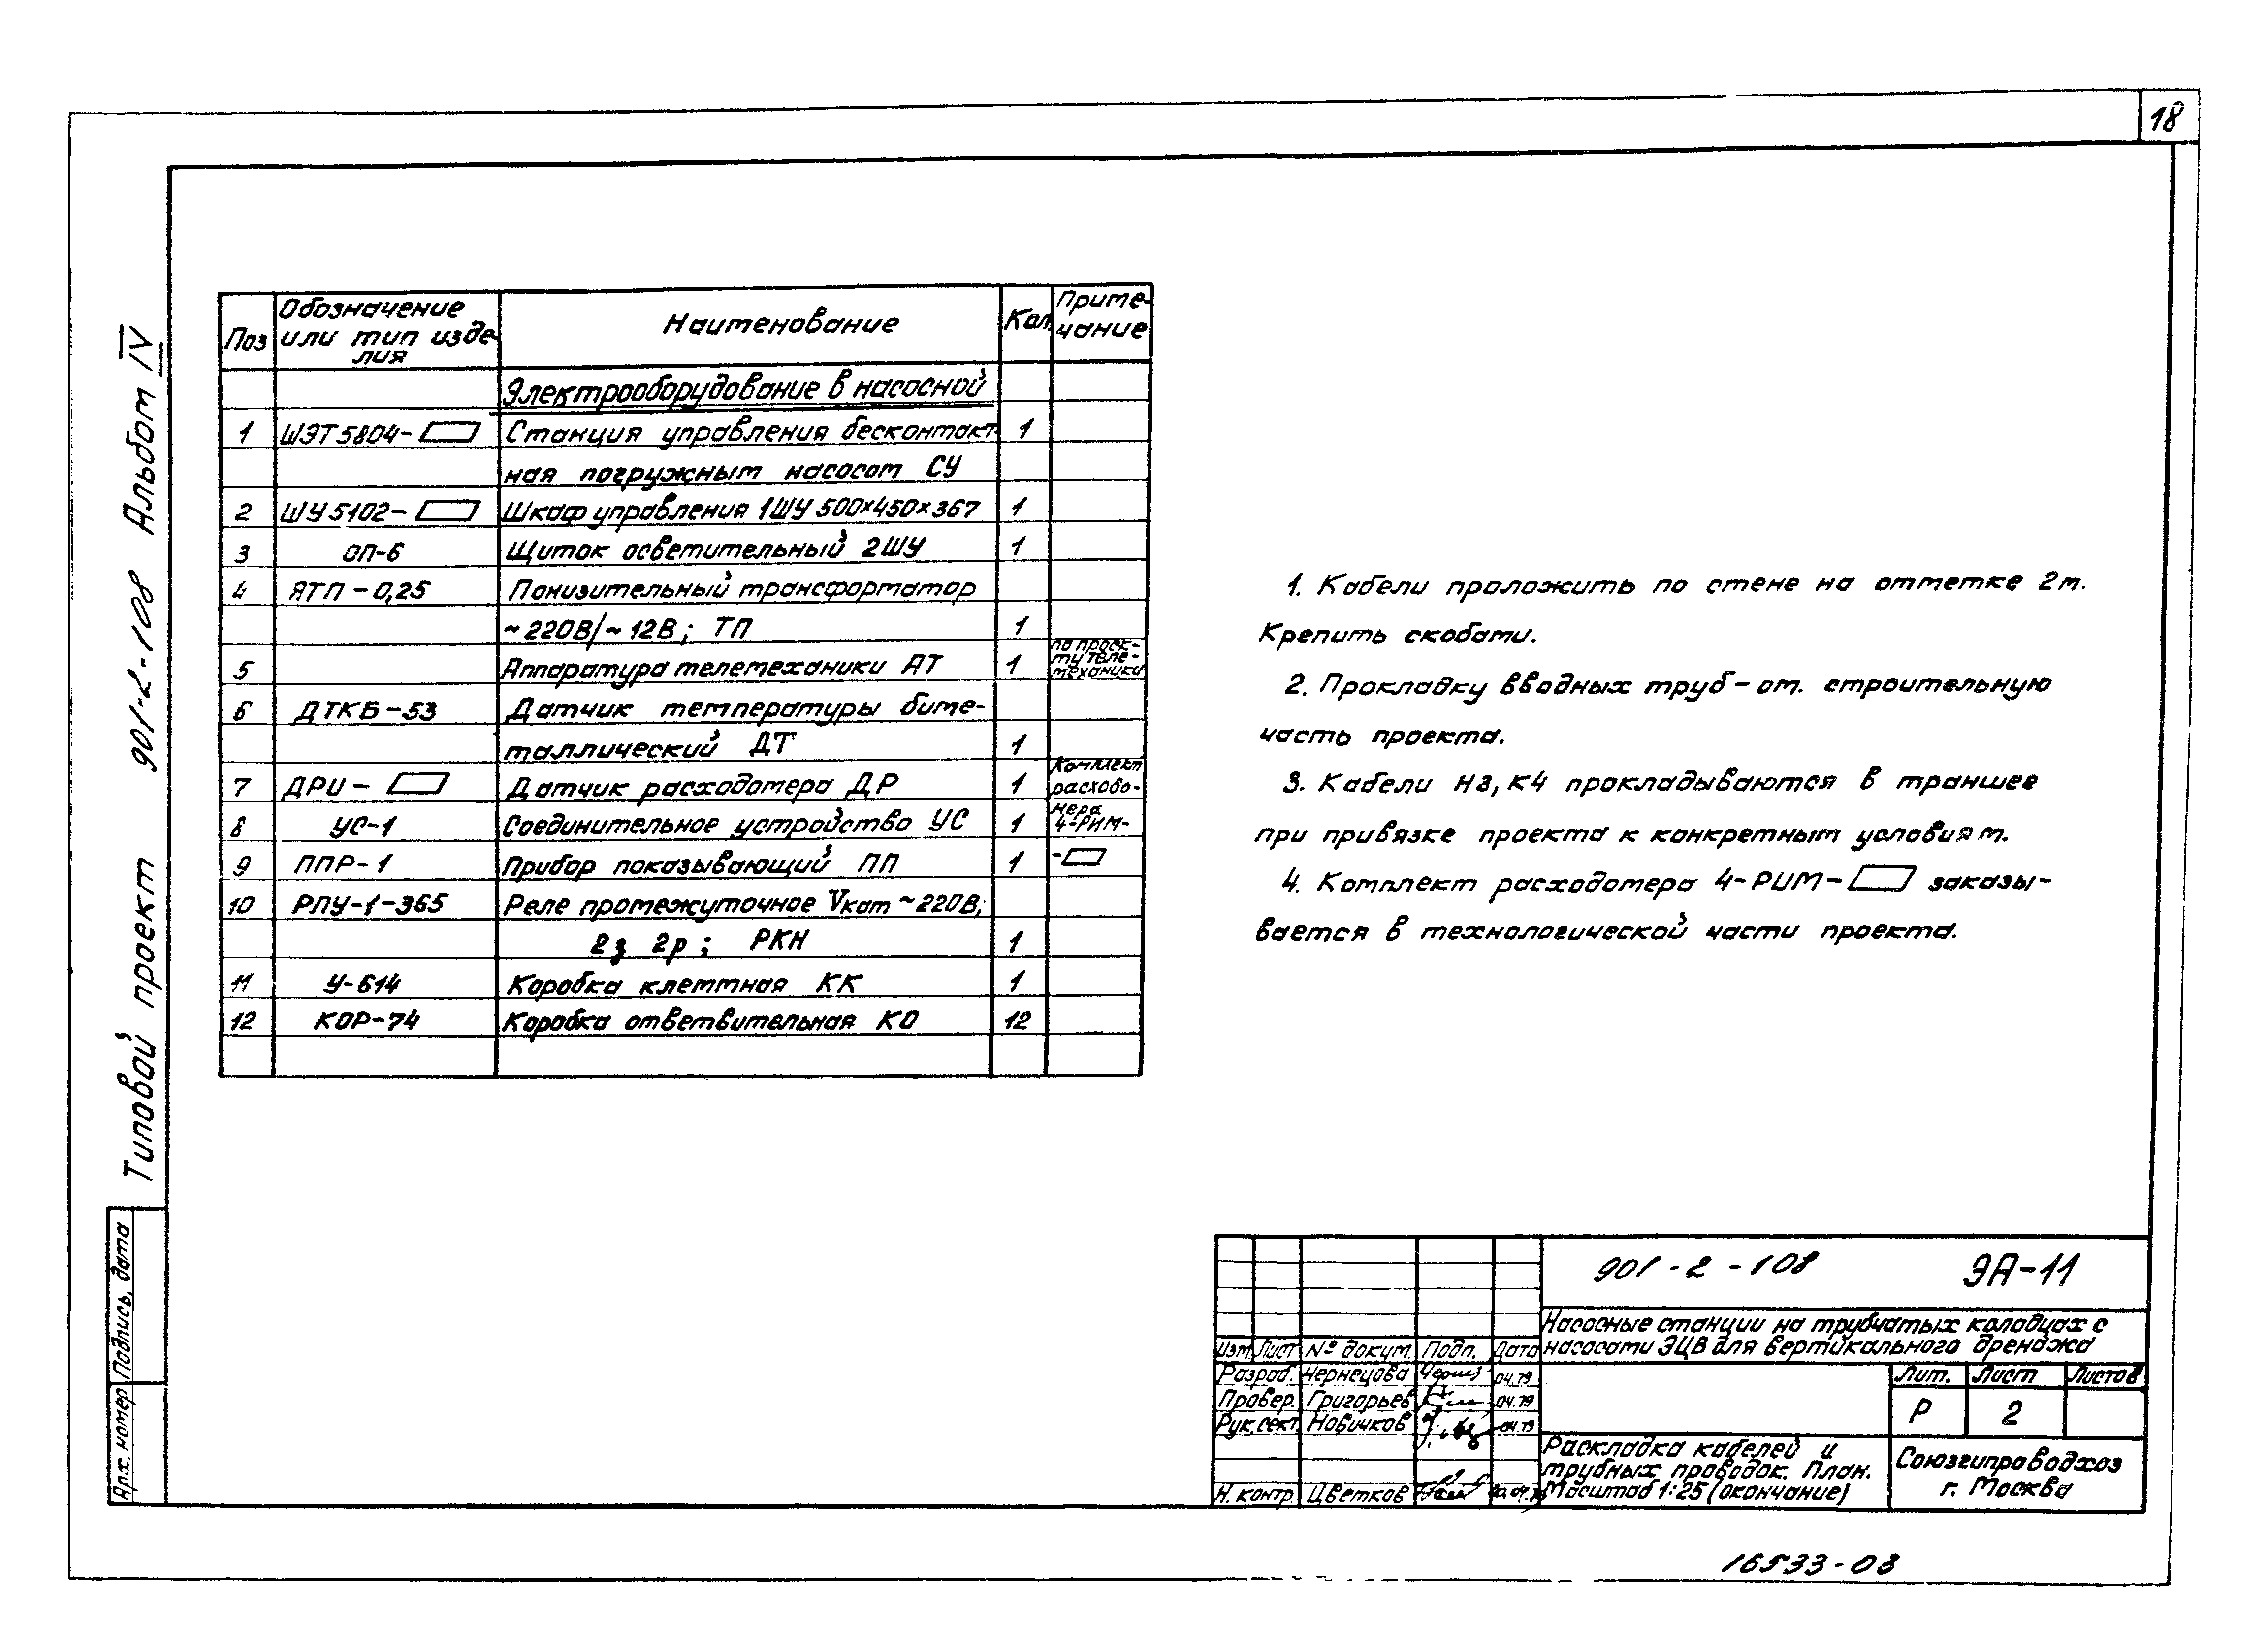 18
Типовой проект 901-2-108 Альбом IV
Поз Обозначение или тип изделия Наименование Кол. Примечание
Электрооборудование в насосной
1 ШЭТ 5804- Станция управления бесконтакт- 1
ная погружным насосом СУ
2 ШУ 5102- Шкаф управления 1ШУ 500×450×367 1
3 ОП-6 Щиток осветительный 2ШУ 1
4 ЯТП-0,25 Понизительный трансформатор
~220В/~12В; ТП 1
5 Аппаратура телемеханики АТ 1 по проек-ту теле-механики
6 ДТКБ-53 Датчик температуры биме-
таллический ДТ 1
7 ДРИ- Датчик расходомера ДР 1 Комплект расходо-
8 УС-1 Соединительное устройство УС 1 мера 4-РИМ-
9 ППР-1 Прибор показывающий ПП 1 -
10 РПУ-1-365 Реле промежуточное Vкат ~220В;
2з 2р; РКН 1
11 У-614 Коробка клеммная КК 1
12 КОР-74 Коробка ответвительная КО 12
1. Кабели проложить по стене на отметке 2м.
Крепить скобами.
2. Прокладку вводных труб-см. строительную
часть проекта.
3. Кабели Н3, К4 прокладываются в траншее
при привязке проекта к конкретным условиям.
4. Комплект расходомера 4-РИМ- заказы-
вается в технологической части проекта.
901-2-108 ЭА-11
Насосные станции на трубчатых колодцах с
насосами ЭЦВ для вертикального дренажа
Изм. Лист № докум. Подп. Дата
Разраб. Чернецова 04.79
Провер. Григорьев 04.79
Рук. сект. Новичков 04.79
Н. контр. Цветков
Лит. Лист Листов
Р 2
Раскладка кабелей и
трубных проводок. План.
Масштаб 1:25 (окончание)
Союзгипроводхоз
г. Москва
Арх. номер Подпись, дата
16533-03